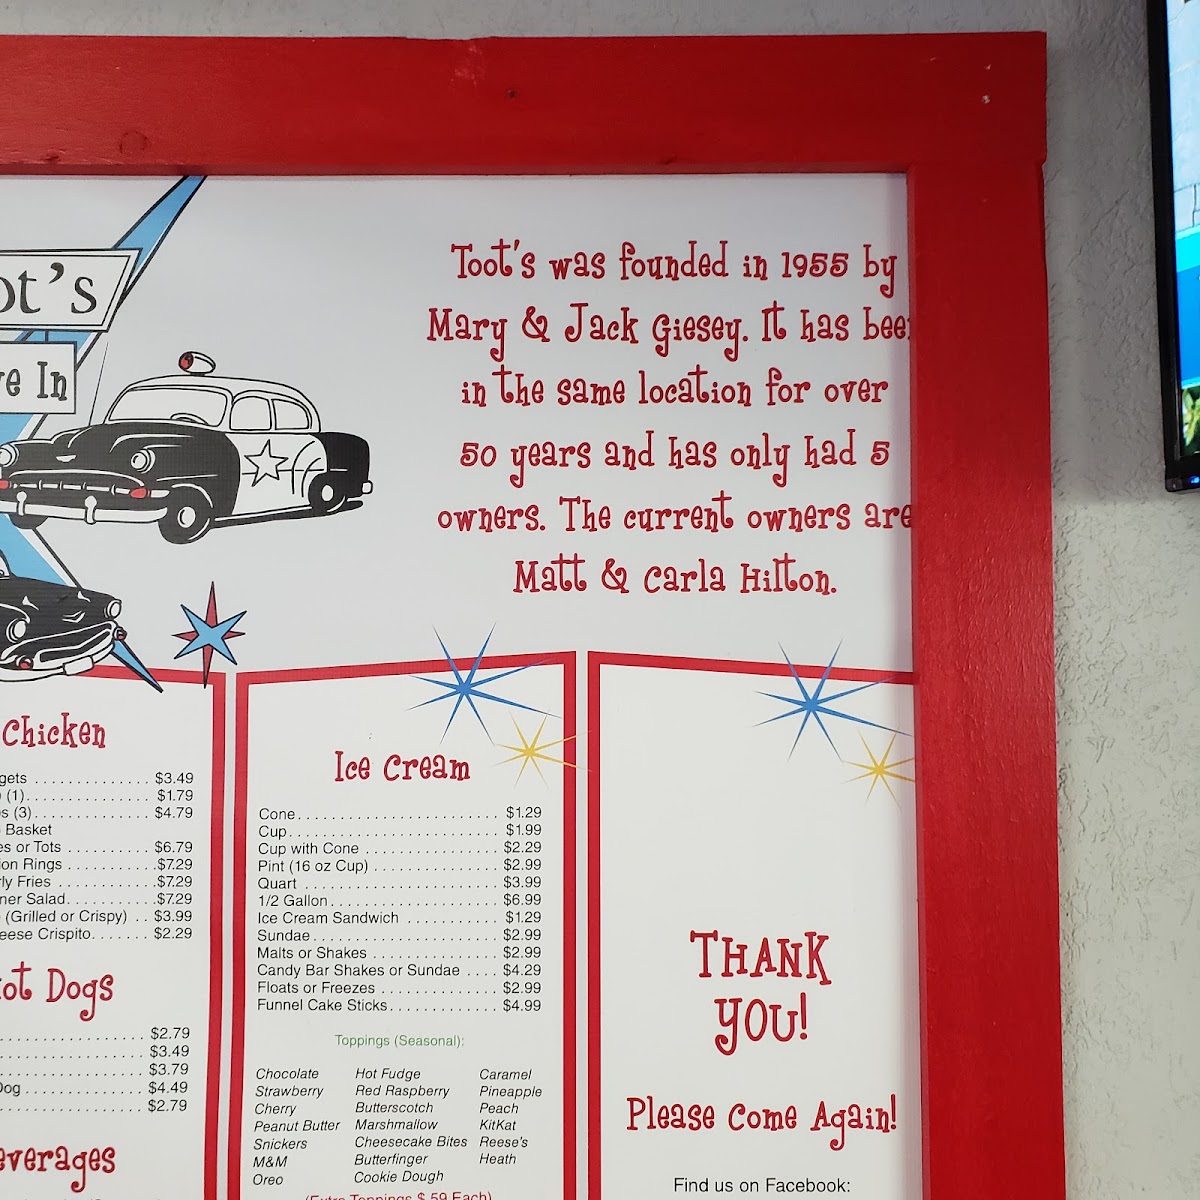 ot's
ve In
Toot's was founded in 1955 by
Mary & Jack Giesey. It has bee
in the same location for over
50 years and has only had 5
owners. The current owners are
Matt & Carla Hilton.
Chicken
gets . . . . . . . . . . . . . . $3.49
(1). . . . . . . . . . . . . . . $1.79
s (3). . . . . . . . . . . . . . $4.79
Basket
es or Tots . . . . . . . . . . $6.79
ion Rings . . . . . . . . . . .$7.29
rly Fries . . . . . . . . . . . .$7.29
ner Salad. . . . . . . . . . .$7.29
(Grilled or Crispy) . . $3.99
eese Crispito. . . . . . . $2.29
ot Dogs
$2.79
$3.49
$3.79
Dog . . . . . . . . . . . . . . $4.49
$2.79
everages
Ice Cream
Cone. . . . . . . . . . . . . . . . . . . . . . . . $1.29
Cup. . . . . . . . . . . . . . . . . . . . . . . . . $1.99
Cup with Cone . . . . . . . . . . . . . . . . $2.29
Pint (16 oz Cup) . . . . . . . . . . . . . . . $2.99
Quart . . . . . . . . . . . . . . . . . . . . . . . $3.99
1/2 Gallon. . . . . . . . . . . . . . . . . . . . $6.99
Ice Cream Sandwich . . . . . . . . . . . $1.29
Sundae. . . . . . . . . . . . . . . . . . . . . . $2.99
Malts or Shakes . . . . . . . . . . . . . . . $2.99
Candy Bar Shakes or Sundae . . . . $4.29
Floats or Freezes . . . . . . . . . . . . . . $2.99
Funnel Cake Sticks. . . . . . . . . . . . . $4.99
Toppings (Seasonal):
Chocolate Hot Fudge Caramel
Strawberry Red Raspberry Pineapple
Cherry Butterscotch Peach
Peanut Butter Marshmallow KitKat
Snickers Cheesecake Bites Reese's
M&M Butterfinger Heath
Oreo Cookie Dough
(Extra Toppings $.59 Each)
THANK
YOU!
Please Come Again!
Find us on Facebook: